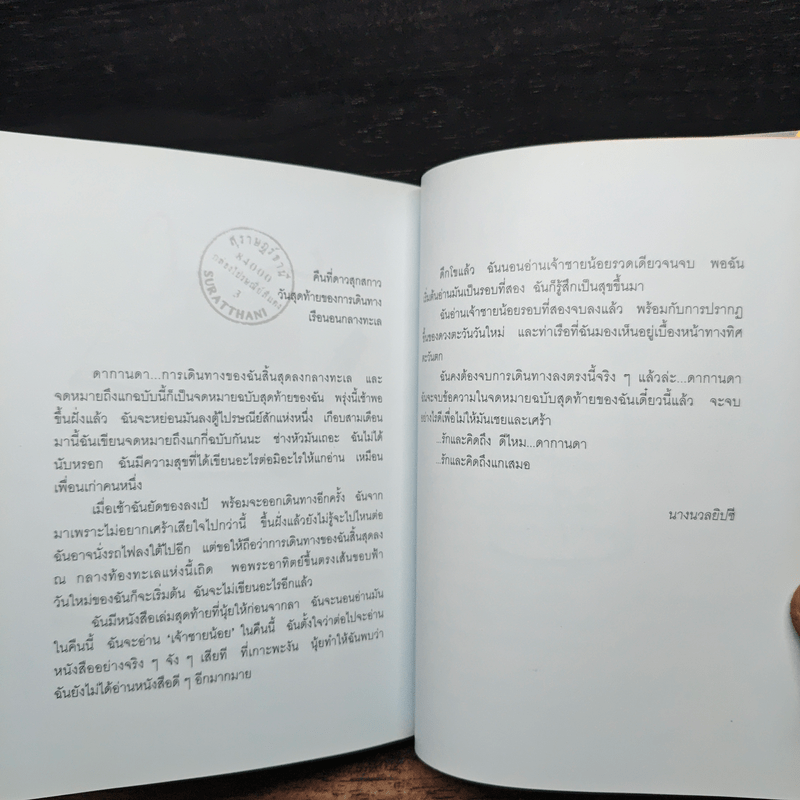 สุราษฎร์ธานี
84000
3
SURATTHANI
คืนที่ดาวสุกสกาว
วันสุดท้ายของการเดินทาง
เรือนอนกลางทะเล
ดากานดา...การเดินทางของฉันสิ้นสุดลงกลางทะเล และ
จดหมายถึงแกฉบับนี้ก็เป็นจดหมายฉบับสุดท้ายของฉัน พรุ่งนี้เช้าพอ
ขึ้นฝั่งแล้ว ฉันจะหย่อนมันลงตู้ไปรษณีย์สักแห่งหนึ่ง เกือบสามเดือน
มานี้ฉันเขียนจดหมายถึงแกกี่ฉบับกันนะ ช่างหัวมันเถอะ ฉันไม่ได้
นับหรอก ฉันมีความสุขที่ได้เขียนอะไรต่อมิอะไรให้แกอ่าน เหมือน
เพื่อนเก่าคนหนึ่ง
เมื่อเช้าฉันยัดของลงเป้ พร้อมจะออกเดินทางอีกครั้ง ฉันจาก
มาเพราะไม่อยากเศร้าเสียใจไปกว่านี้ ขึ้นฝั่งแล้วยังไม่รู้จะไปไหนต่อ
ฉันอาจนั่งรถไฟลงใต้ไปอีก แต่ขอให้ถือว่าการเดินทางของฉันสิ้นสุดลง
ณ กลางท้องทะเลแห่งนี้เถิด พอพระอาทิตย์ขึ้นตรงเส้นขอบฟ้า
วันใหม่ของฉันก็จะเริ่มต้น ฉันจะไม่เขียนอะไรอีกแล้ว
ฉันมีหนังสือเล่มสุดท้ายที่นุ้ยให้ก่อนจากลา ฉันจะนอนอ่านมัน
ในคืนนี้ ฉันจะอ่าน "เจ้าชายน้อย" ในคืนนี้ ฉันตั้งใจว่าต่อไปจะอ่าน
หนังสืออย่างจริง ๆ จัง ๆ เสียที ที่เกาะพะงัน นุ้ยทำให้ฉันพบว่า
ฉันยังไม่ได้อ่านหนังสือดี ๆ อีกมากมาย
ดึกโขแล้ว ฉันนอนอ่านเจ้าชายน้อยรวดเดียวจนจบ พอฉัน
เริ่มต้นอ่านมันเป็นรอบที่สอง ฉันก็รู้สึกเป็นสุขขึ้นมา
ฉันอ่านเจ้าชายน้อยรอบที่สองจบลงแล้ว พร้อมกับการปรากฏ
ขึ้นของดวงตะวันวันใหม่ และท่าเรือที่ฉันมองเห็นอยู่เบื้องหน้าทางทิศ
ตะวันตก
ฉันคงต้องจบการเดินทางลงตรงนี้จริง ๆ แล้วล่ะ...ดากานดา
ฉันจะจบข้อความในจดหมายฉบับสุดท้ายของฉันเดี๋ยวนี้แล้ว จะจบ
อย่างไรดีเพื่อไม่ให้มันเชยและเศร้า
..รักและคิดถึง ดีไหม...ดากานดา
..รักและคิดถึงแกเสมอ
นางนวลยิปซี